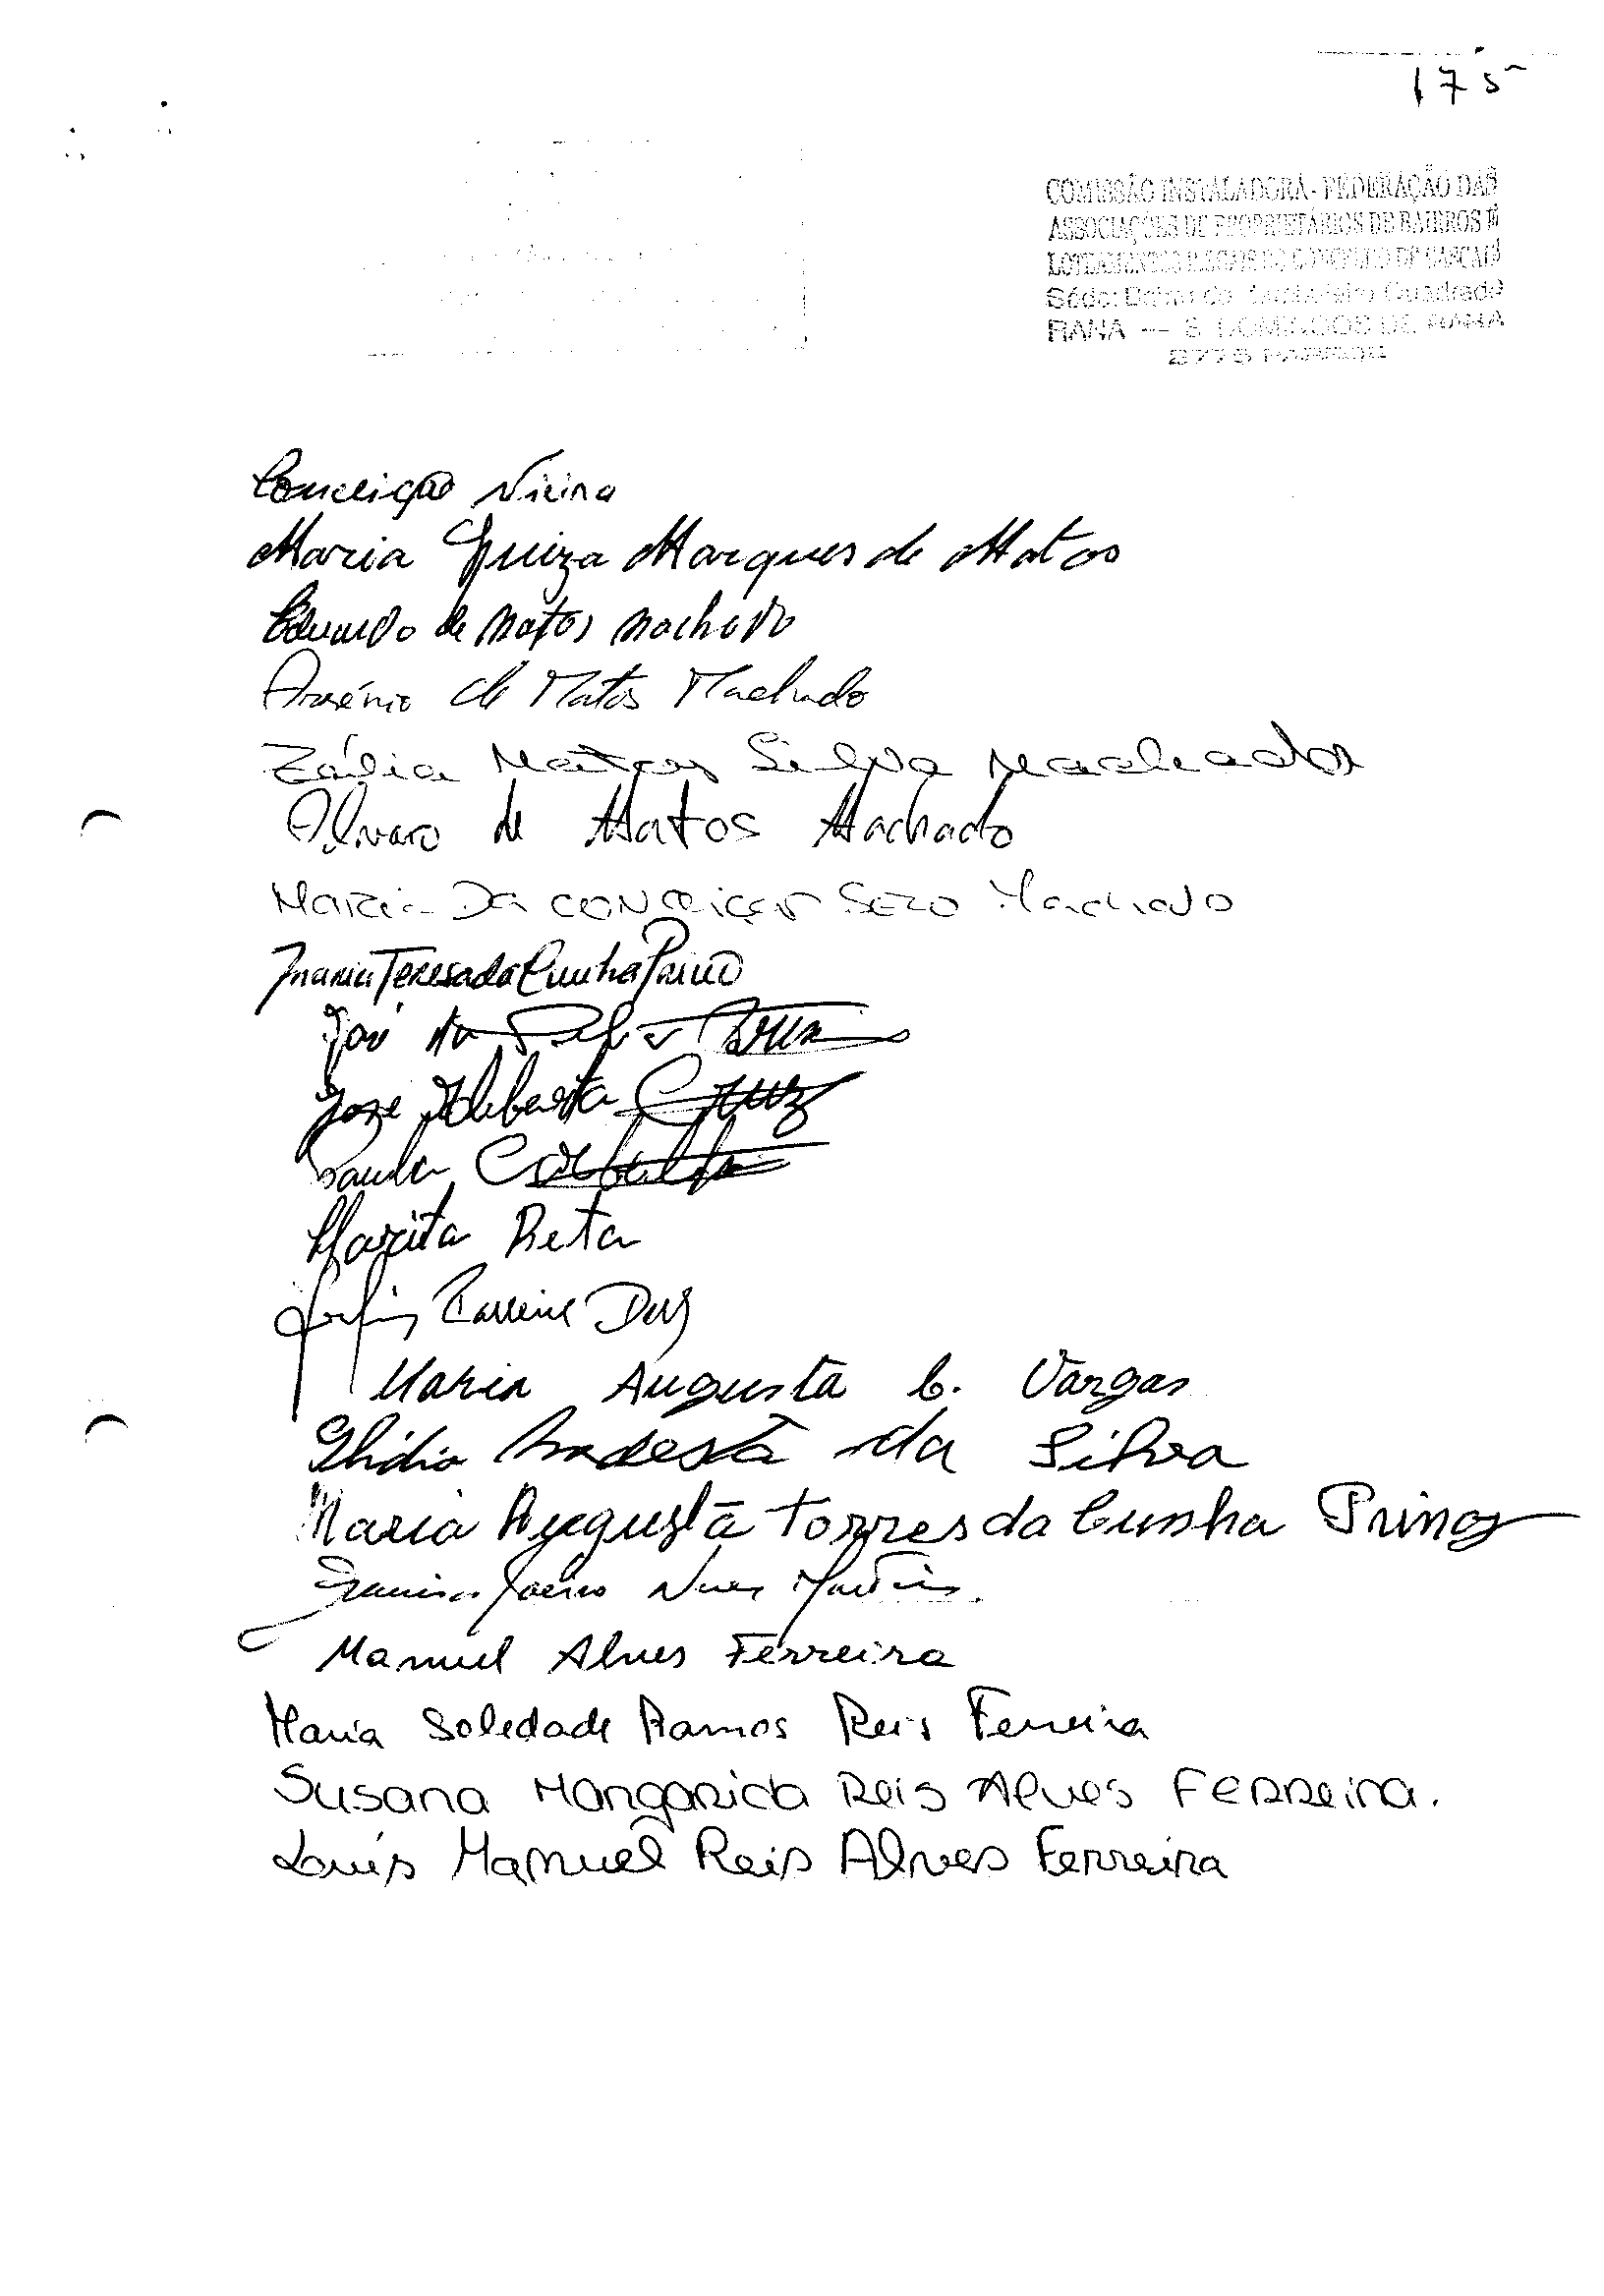 175
COMISSÃO INSTALADORA - FEDERAÇÃO DAS
ASSOCIAÇÕES DE PROPRIETÁRIOS DE BAIRROS E
LOTEAMENTOS ILEGAIS DO CONCELHO DE CASCAIS
Sede: Bairro do Quadrado
RANA — S. DOMINGOS DE RANA
2775 PAREDE
Conceição Vieira
Maria Luiza Marques de Matos
Eduardo de Matos Machado
Arsénio de Matos Machado
Zália Matos Silva Machado
Álvaro de Matos Machado
Maria Da Conceição Sezo Machado
Maria Teresa da Cunha Primo
José da Silva
José Cruz
Paula
Rita
Dias
Maria Augusta C. Vargas
Elidio Modesta da Silva
Maria Augusta Torres da Cunha Primo
Nunes Martins
Manuel Alves Ferreira
Maria Soledade Ramos Reis Ferreira
Susana Margarida Reis Alves Ferreira.
Luís Manuel Reis Alves Ferreira